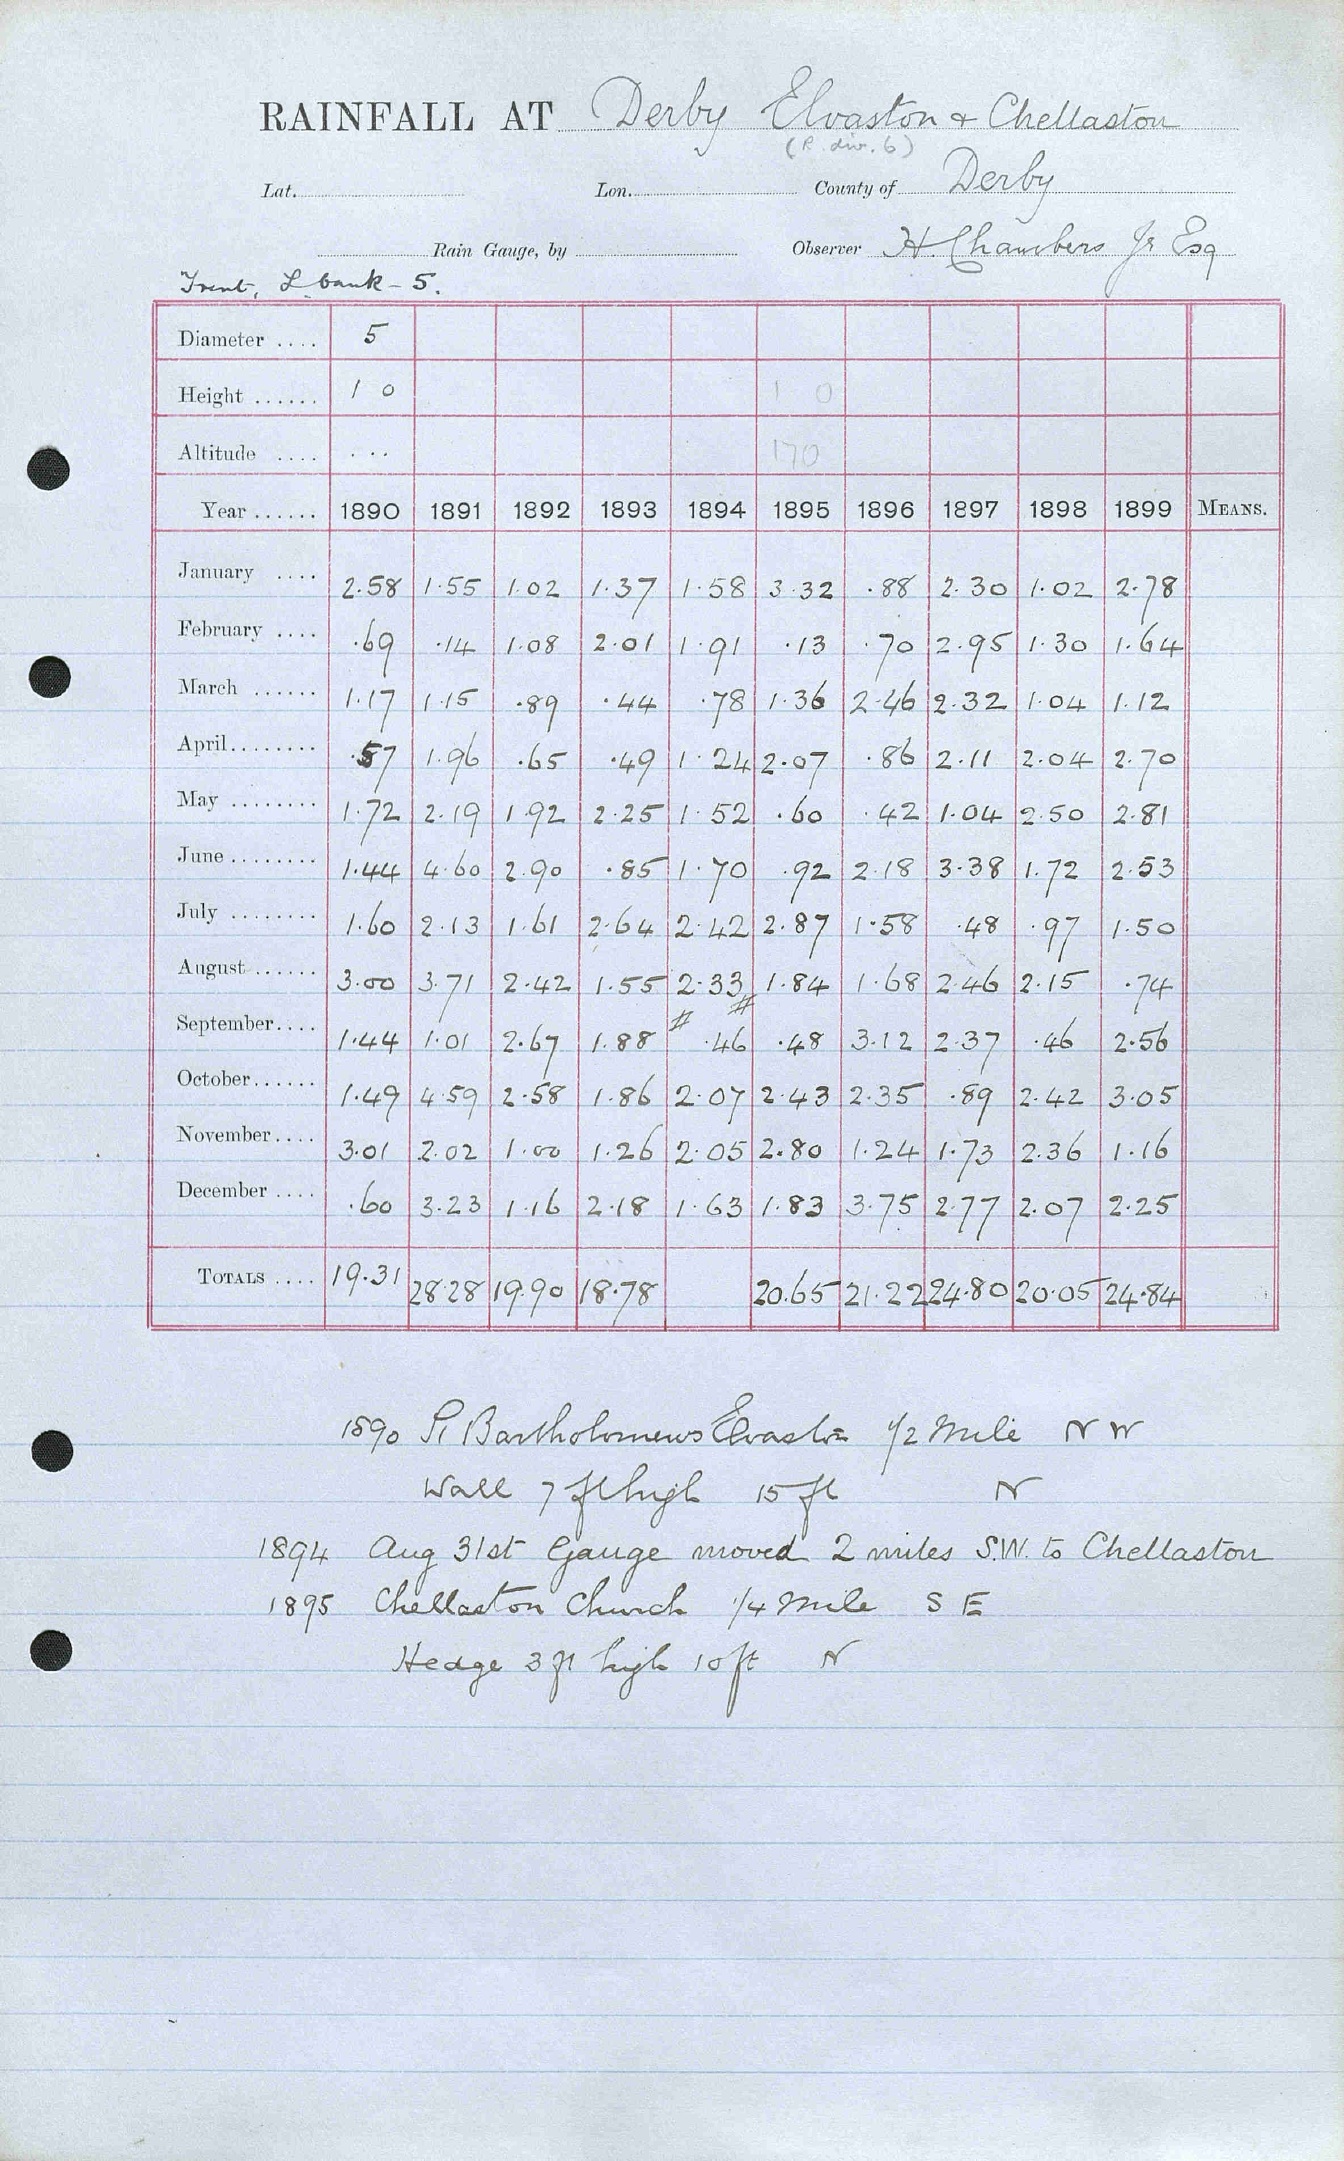 RAINFALL AT Derby Elvaston & Chellaston
(R. div. 6)
Lat. Lon. County of Derby
Rain Gauge, by Observer H. Chambers Jr Esq
Trent, L bank - 5.
Diameter .... 5
Height ...... 1 0 1 0
Altitude .... ... 170
Year ...... 1890 1891 1892 1893 1894 1895 1896 1897 1898 1899 MEANS.
January .... 2.58 1.55 1.02 1.37 1.58 3.32 .88 2.30 1.02 2.78
February .... .69 .14 1.08 2.01 1.91 .13 .70 2.95 1.30 1.64
March ...... 1.17 1.15 .89 .44 .78 1.36 2.46 2.32 1.04 1.12
April........ .57 1.96 .65 .49 1.24 2.07 .86 2.11 2.04 2.70
May ........ 1.72 2.19 1.92 2.25 1.52 .60 .42 1.04 2.50 2.81
June ........ 1.44 4.60 2.90 .85 1.70 .92 2.18 3.38 1.72 2.53
July ........ 1.60 2.13 1.61 2.64 2.42 2.87 1.58 .48 .97 1.50
August ...... 3.00 3.71 2.42 1.55 2.33 # 1.84 1.68 2.46 2.15 .74
September.... 1.44 1.01 2.67 1.88 # .46 .48 3.12 2.37 .46 2.56
October...... 1.49 4.59 2.58 1.86 2.07 2.43 2.35 .89 2.42 3.05
November.... 3.01 2.02 1.00 1.26 2.05 2.80 1.24 1.73 2.36 1.16
December .... .60 3.23 1.16 2.18 1.63 1.83 3.75 2.77 2.07 2.25
TOTALS .... 19.31 28.28 19.90 18.78 20.65 21.22 24.80 20.05 24.84
1890 St Bartholomews Elvaston 1/2 Mile N W
Wall 7 ft high 15 ft N
1894 Aug 31st Gauge moved 2 miles S.W. to Chellaston
1895 Chellaston Church 1/4 Mile S E
Hedge 3 ft high 10 ft N